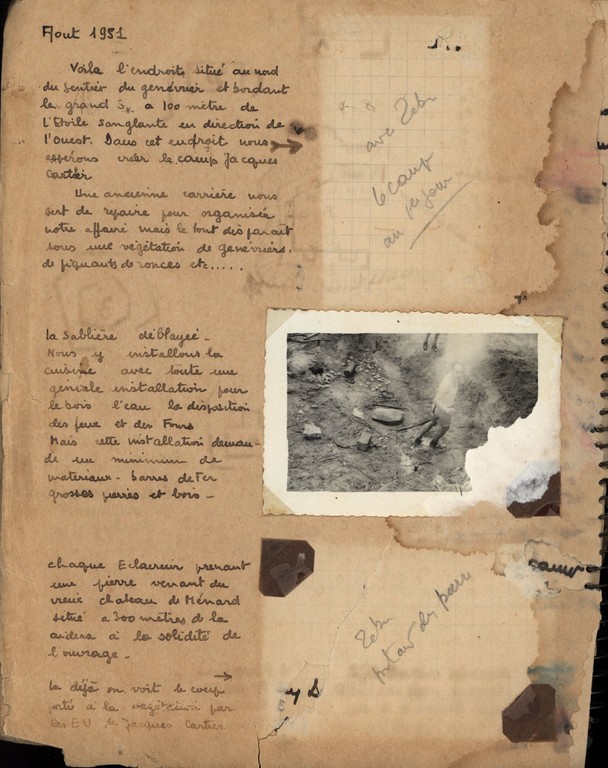 Aout 1951
Voila l'endroit, situé au nord
du sentier du genévrier et bordant
le grand S, a 100 mètre de
l'Etoile sanglante en direction de
l'ouest. Dans cet endroit nous
espérons créer le camp Jacques
Cartier
Une ancienne carrière nous
sert de repaire pour organiser
notre affaire mais le tout disparait
sous une végétation de genévriers,
de piquants de ronces etc.....
avec Zebu
le camp
la Sablière déblayée -
Nous y installons la
cuisine avec toute une
geniale installation pour
le bois l'eau la disposition
des feux et des Fours
Mais cette installation deman-
de un minimum de
materiaux - barres de Fer
grosses pierres et bois -
chaque Eclaireur prenant
une pierre venant du
vieux chateau de Ménard
situé a 300 mètres de la
aidera à la solidité de
l'ouvrage -
Zebu
la déjà on voit le coup
porté à la végétation par
les E.U de Jacques Cartier